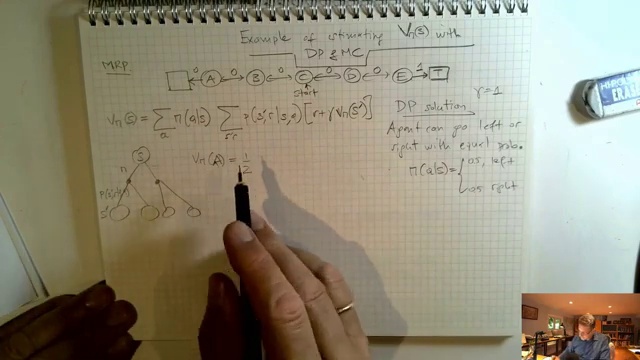 Example of estimating Vπ(s) with
DP & MC
MRP
0 A 0 B 0 C 0 D 0 E 1 T
start
Vπ(s) = Σa π(a|s) Σs'r p(s',r|s,a) [r+γVπ(s')]
DP solution γ=1
Agent can go left or
right with equal prob.
π(a|s) = { 0.5, left
0.5 right
S
π
Vπ(A) = 1/2
S'
ERAS